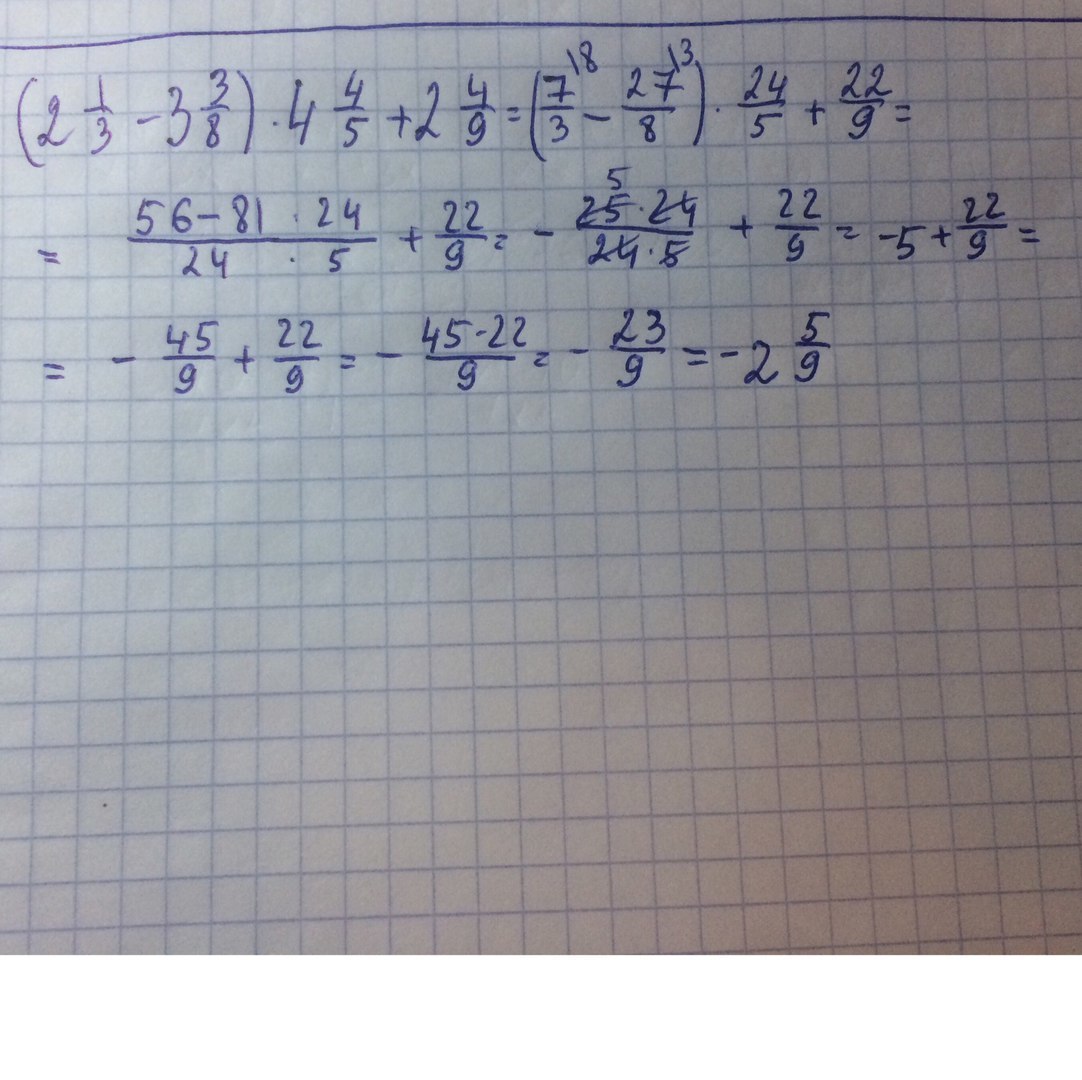 (2 1/3 - 3 3/8) · 4 4/5 + 2 4/9 = (7/3 \8 - 27/8 \3) · 24/5 + 22/9 =
= 56-81 · 24 / 24 · 5 + 22/9 = - 5 25·24 / 24·5 + 22/9 = -5 + 22/9 =
= - 45/9 + 22/9 = - 45-22 / 9 = - 23/9 = -2 5/9